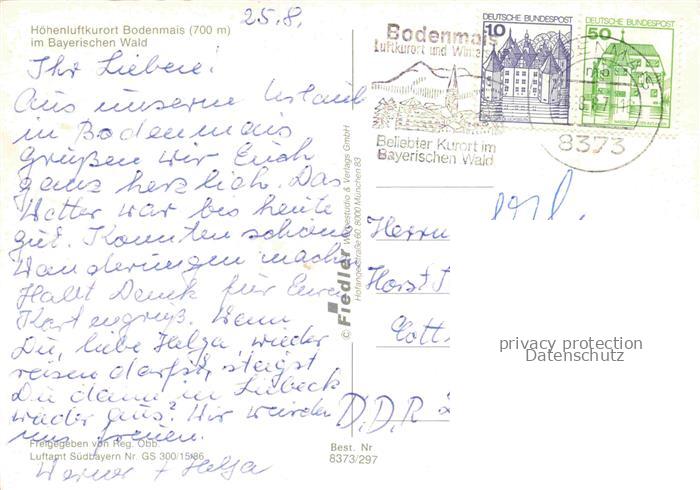 Höhenluftkurort Bodenmais (700 m)
im Bayerischen Wald
25.8.
Ihr Lieben!
Aus unserem Urlaub
in Bodenmais
grüßen wir Euch
ganz herzlich. Das
Wetter war bis heute
gut. Konnten schöne
Wanderungen machen
Habt Dank für Euren
Kartengruß. Wenn
Du, liebe Helga wieder
reisen darfst, steigst
Du dann in Lübeck
wieder aus? Wir würden
uns freuen.
Werner + Helga
Freigegeben von Reg. Obb.
Luftamt Südbayern Nr. GS 300/15/86
Best. Nr
8373/297
© Fiedler Werbestudio & Verlags GmbH
Hofangerstraße 60, 8000 München 83
Bodenmais
Luftkurort und
Beliebter Kurort im
Bayerischen Wald
10
DEUTSCHE BUNDESPOST
50
DEUTSCHE BUNDESPOST
8373
Herrn
Horst
Cott
D.D.R
privacy protection
Datenschutz